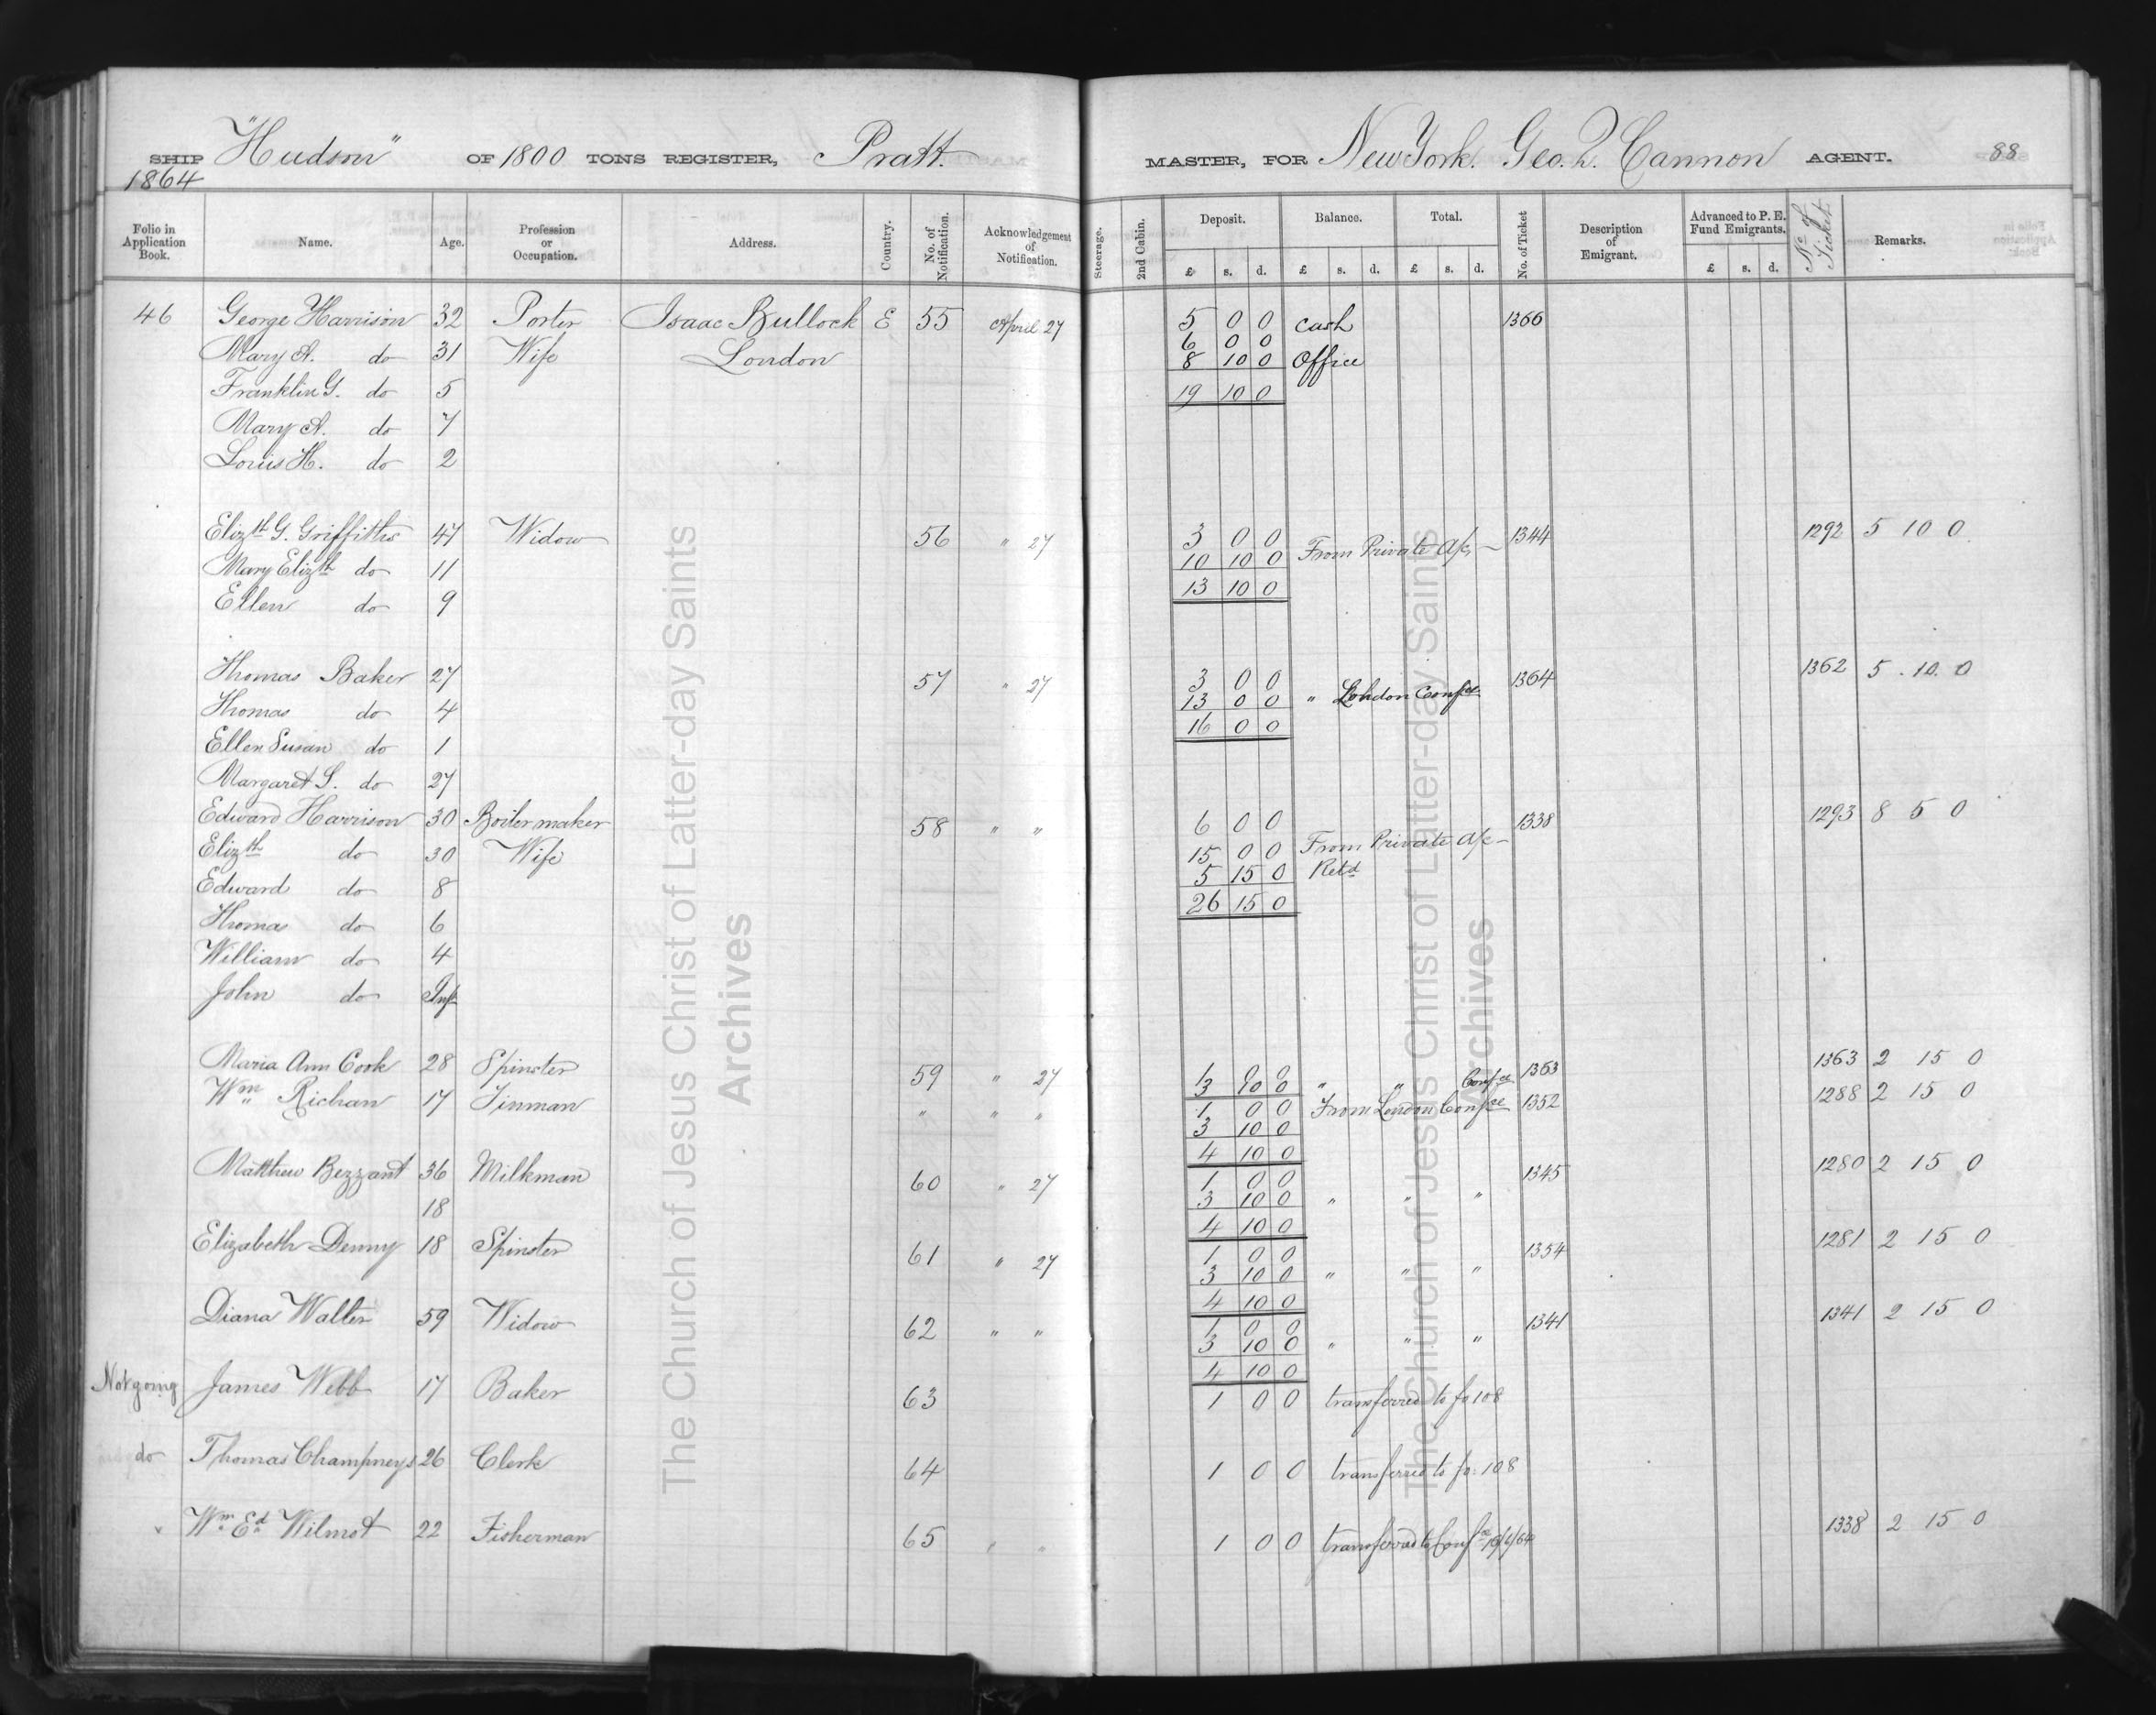 SHIP "Hudson" OF 1800 TONS REGISTER, Pratt. MASTER, FOR New York. Geo. Q. Cannon AGENT. 88
1864
Folio in Application Book. Name. Age. Profession or Occupation. Address. Country. No. of Notification. Acknowledgement of Notification. Steerage. 2nd Cabin. Deposit. £ s. d. Balance. £ s. d. Total. £ s. d. No. of Ticket Description of Emigrant. Advanced to P. E. Fund Emigrants. £ s. d. No. of Ticket Remarks.
46 George Harrison 32 Porter Isaac Bullock E 55 April 27 5 0 0 Cash 1366
6 0 0
Mary A. do 31 Wife London 8 10 0 Office
Franklin G. do 5 19 10 0
Mary A. do 7
Louis H. do 2
Elizth G. Griffiths 47 Widow 56 " 27 3 0 0 1344 1292 5 10 0
Mary Elizth do 11 10 10 0 From Private A/c
Ellen do 9 13 10 0
Thomas Baker 27 57 " 27 3 0 0 1364 1362 5 . 10. 0
Thomas do 4 13 0 0 " London Confce
Ellen Susan do 1 16 0 0
Margaret S. do 27
Edward Harrison 30 Boilermaker 58 " " 6 0 0 1338 1293 8 5 0
Elizth do 30 Wife 15 0 0 From Private A/c
Edward do 8 5 15 0 Retd
Thomas do 6 26 15 0
William do 4
John do Inf
Maria Ann Cook 28 Spinster 59 " 27 1 0 0 1363 1363 2 15 0
3 10 0 " " Confce
Wm Richan 17 Tinman " " " 1 0 0 From London Confce 1352 1288 2 15 0
3 10 0
4 10 0
Matthew Bezzant 36 Milkman 60 " 27 1 0 0 1345 1280 2 15 0
18 3 10 0 " " "
4 10 0
Elizabeth Denny 18 Spinster 61 " 27 1 0 0 1354 1281 2 15 0
3 10 0 " " "
4 10 0
Diana Walter 59 Widow 62 " " 1 0 0 1341 1341 2 15 0
3 10 0 " " "
4 10 0
Not going James Webb 17 Baker 63 1 0 0 transferred to fo 108
do Thomas Champneys 26 Clerk 64 1 0 0 transferred to fo. 108
Wm Ed Wilmot 22 Fisherman 65 " " 1 0 0 transferred to Confce 1338 2 15 0
The Church of Jesus Christ of Latter-day Saints
Archives
The Church of Jesus Christ of Latter-day Saints
Archives